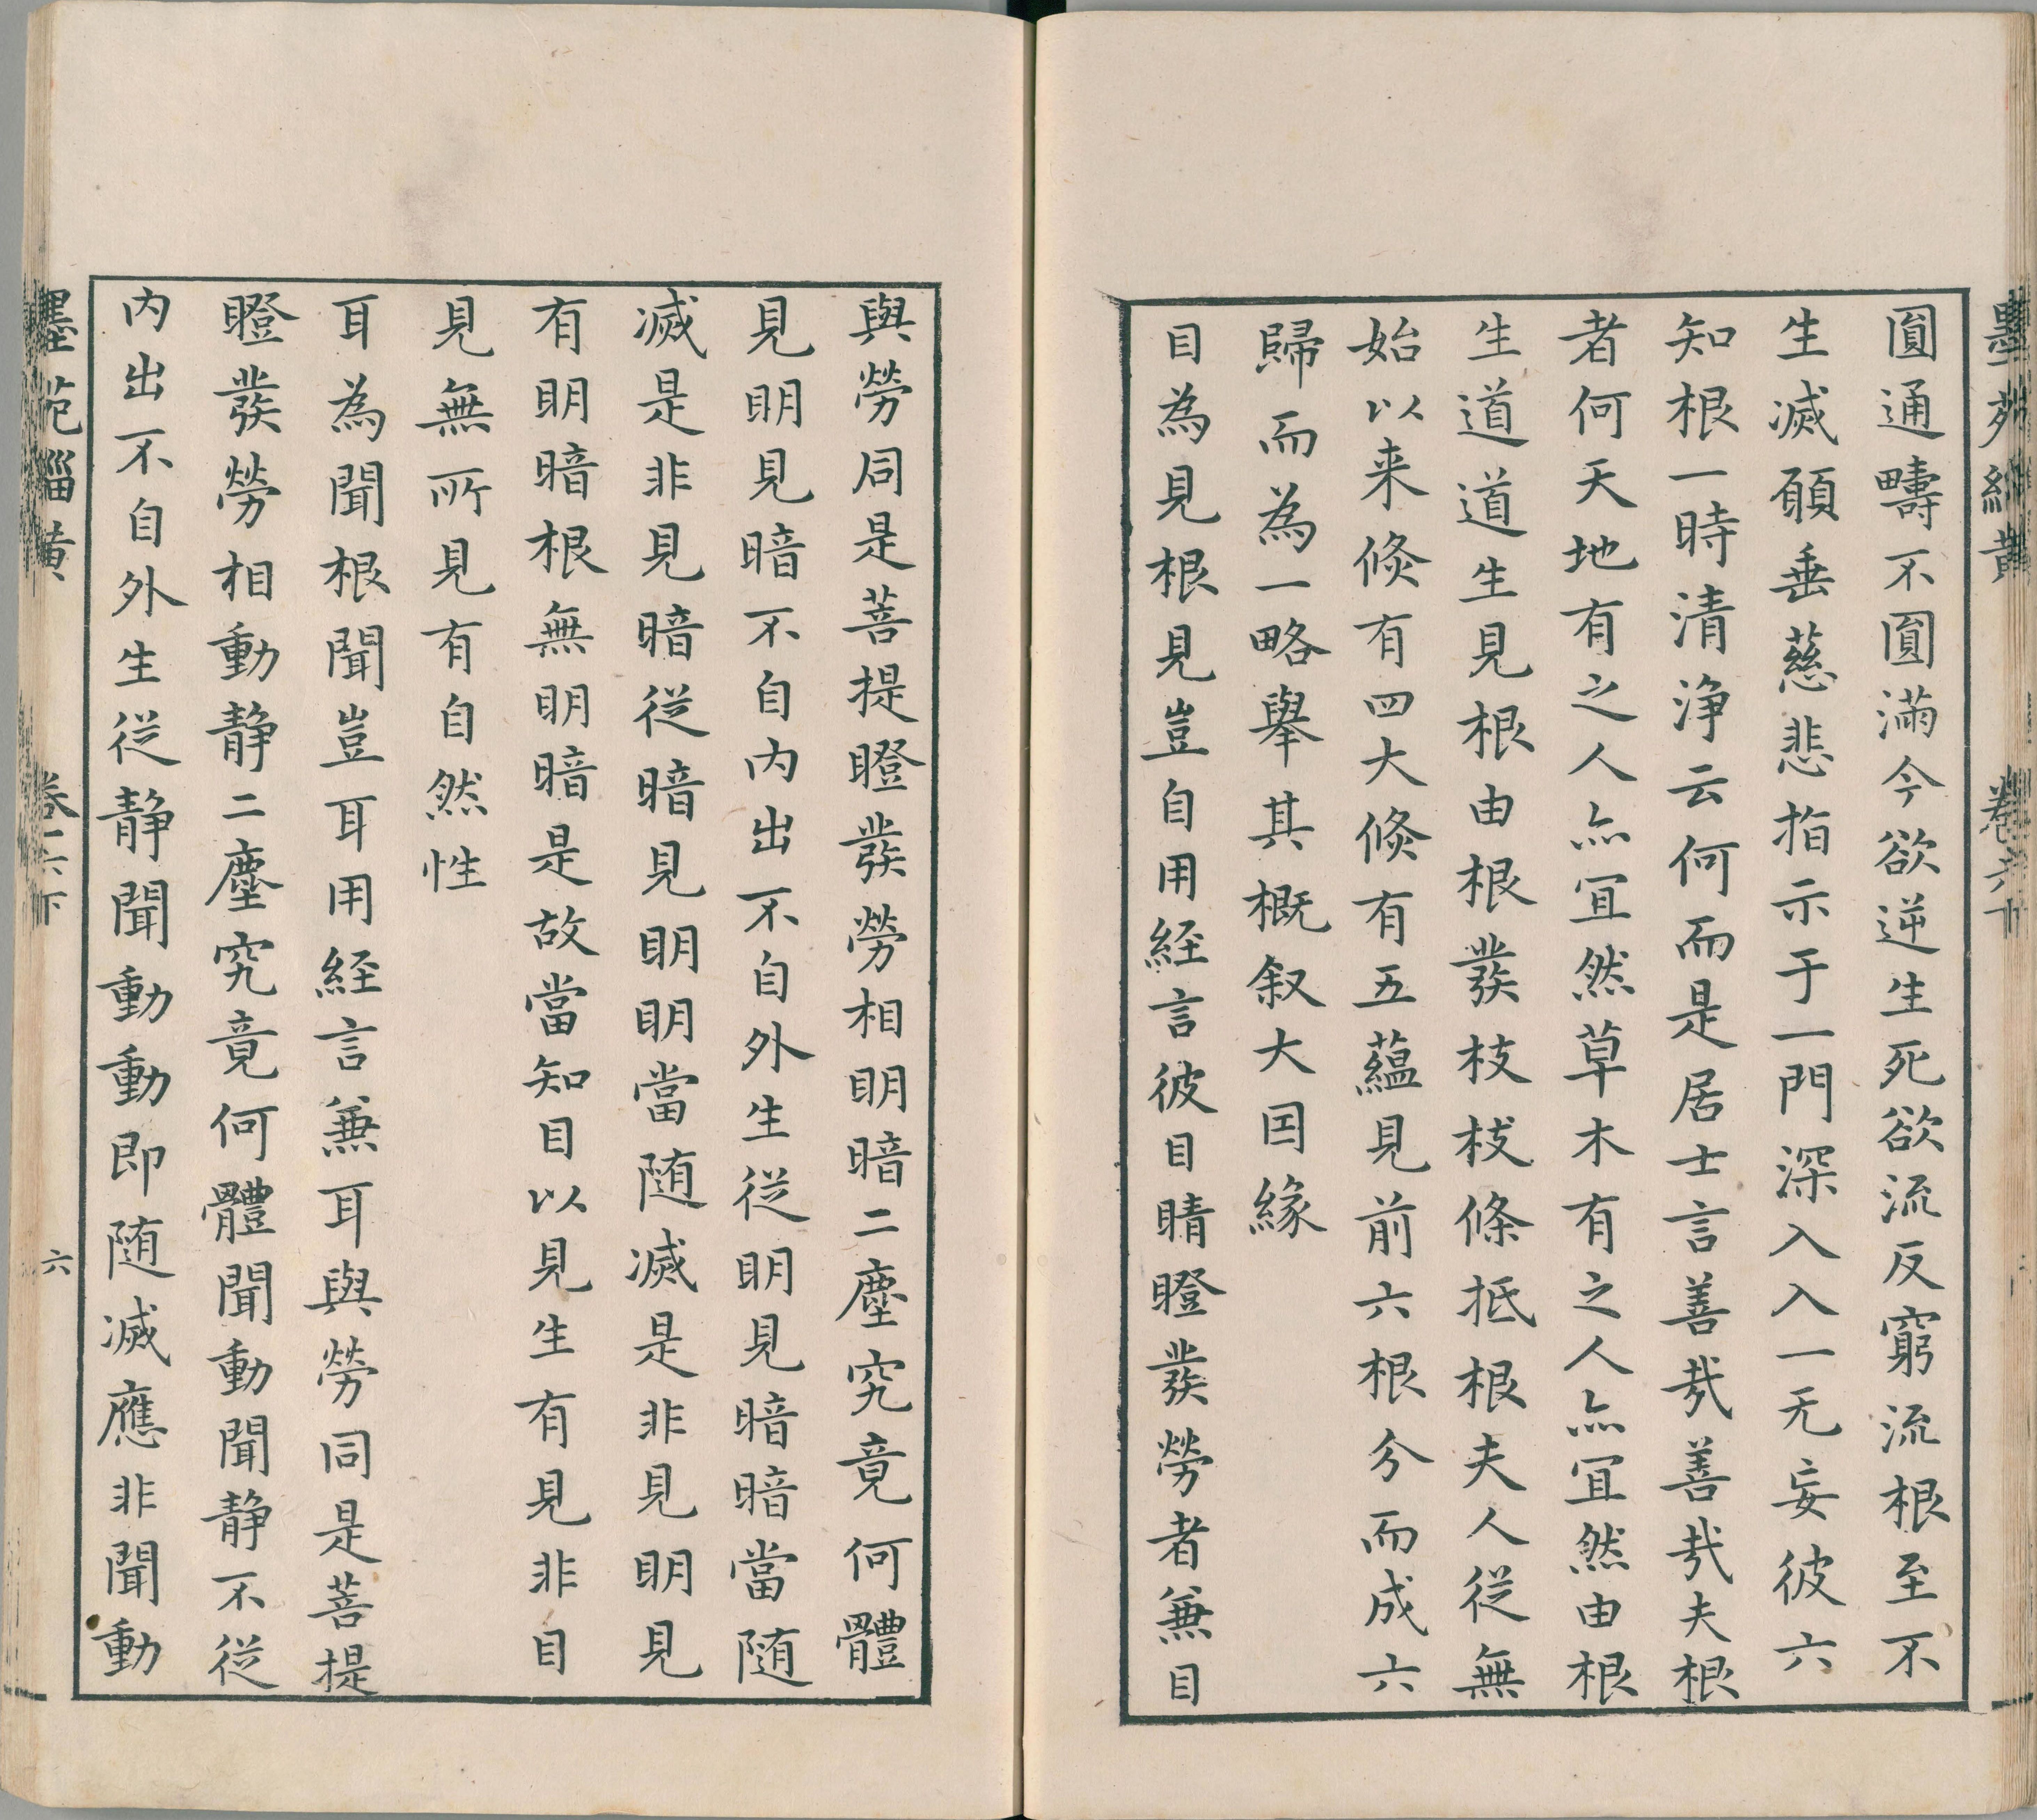 墨苑緇黄
卷六下
圎通疇不圎滿今欲逆生死欲流反窮流根至不
生滅願垂慈悲指示于一門深入入一无妄彼六
知根一時清淨云何而是居士言善哉善哉夫根
者何天地有之人亦宜然草木有之人亦宜然由根
生道道生見根由根發枝枝條抵根夫人從無
始以来倐有四大倐有五蘊見前六根分而成六
歸而為一略舉其概叙大因緣
目為見根見豈自用經言彼目睛瞪發勞者兼目
與勞同是菩提瞪發勞相明暗二塵究竟何體
見明見暗不自內出不自外生從明見暗暗當随
滅是非見暗從暗見明明當随滅是非見明見
有明暗根無明暗是故當知目以見生有見非目
見無所見有自然性
耳為聞根聞豈耳用經言兼耳與勞同是菩提
瞪發勞相動静二塵究竟何體聞動聞静不從
內出不自外生從静聞動動即随滅應非聞動
墨苑緇黄
卷六下
六